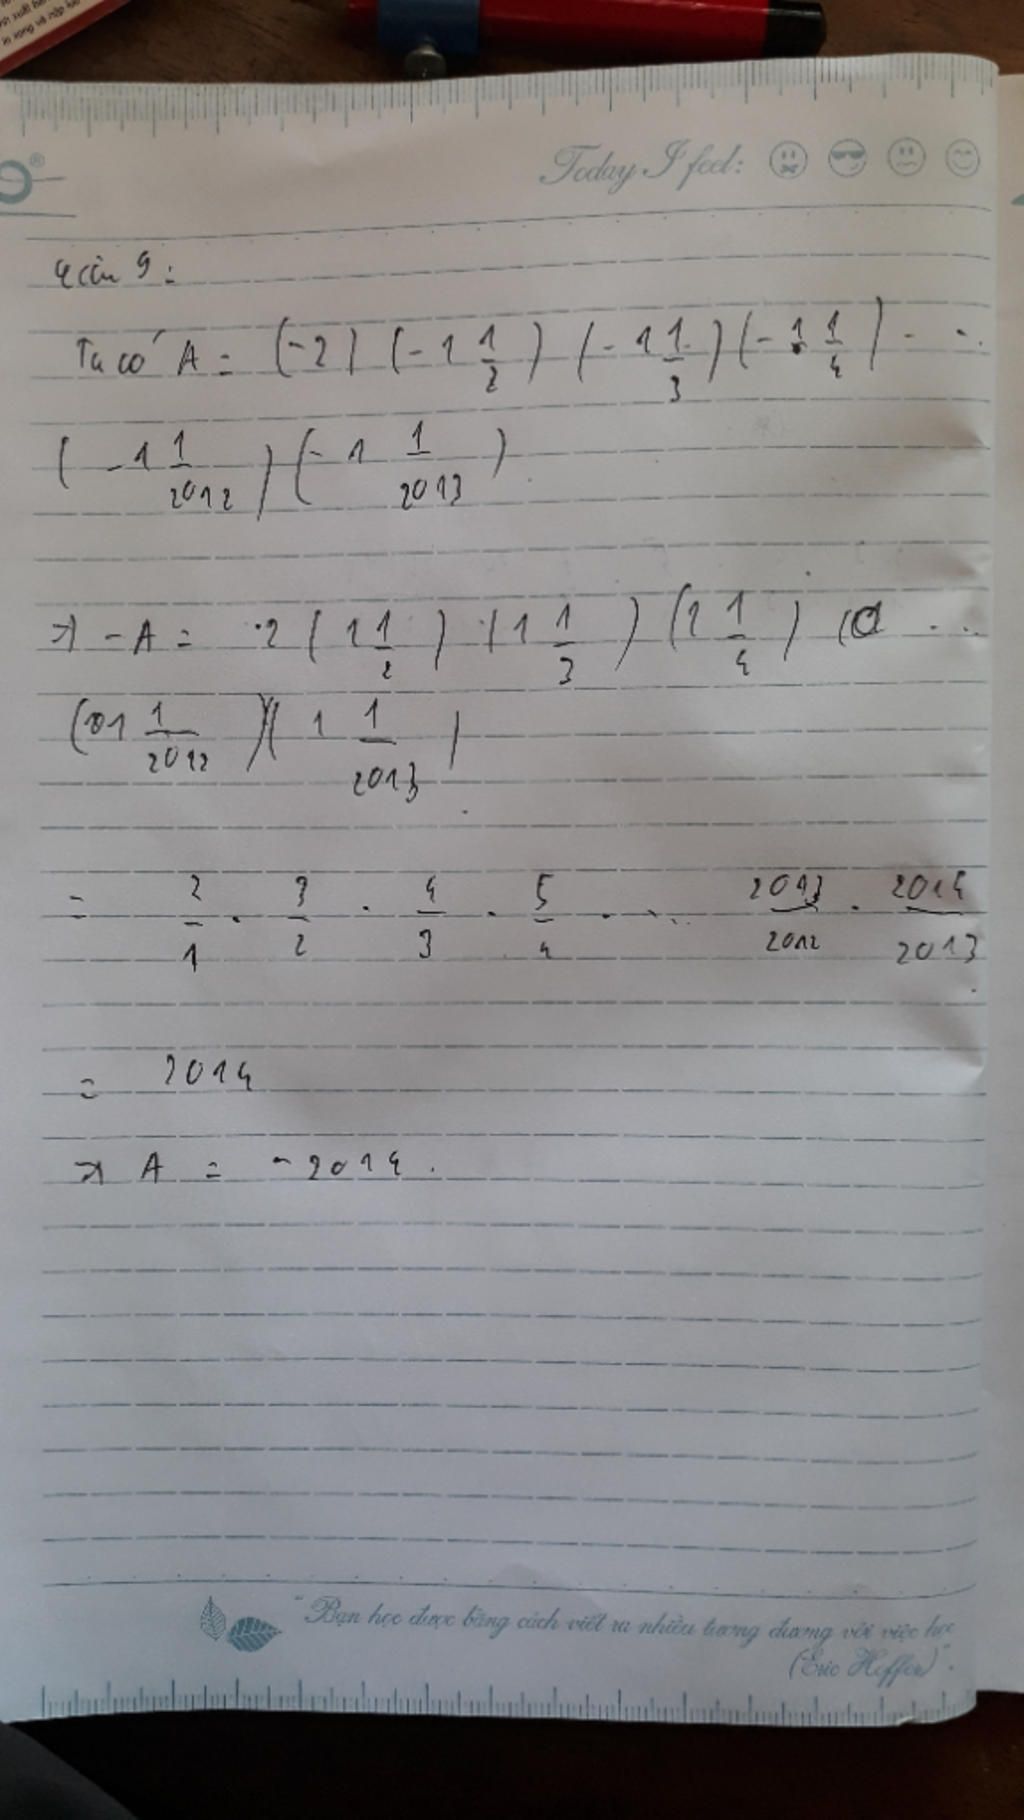 in xong và nộp lưu
Today I feel:
Câu 9:
Ta có A = (-2) (-1 1/2) (-1 1/3) (-1 1/4) ...
(-1 1/2012) (-1 1/2013)
=> -A = 2 (1 1/2) (1 1/3) (1 1/4) ...
(1 1/2012) (1 1/2013)
= 2/1 . 3/2 . 4/3 . 5/4 . ... 2013/2012 . 2014/2013
= 2014
=> A = -2014.
"Bạn học được bằng cách viết ra nhiều tương đương với việc học
(Eric Hoffer)".